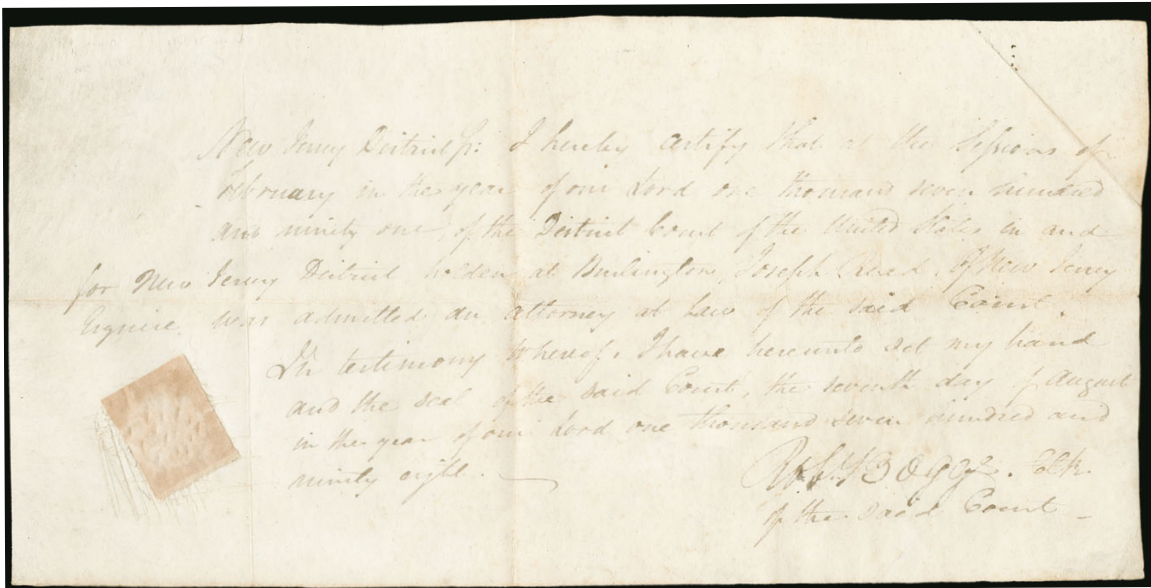 New Jersey District ss: I hereby certify that at the Sessions of
February in the year of our Lord one thousand seven hundred
and ninety one, of the District Court of the United States in and
for New Jersey District holden at Burlington, Joseph Reed of New Jersey
Esquire was admitted an attorney at Law of the said Court.
In testimony whereof, I have hereunto set my hand
and the seal of the said Court, the seventh day of August
in the year of our Lord one thousand seven hundred and
ninety eight.
Clk.
of the said Court